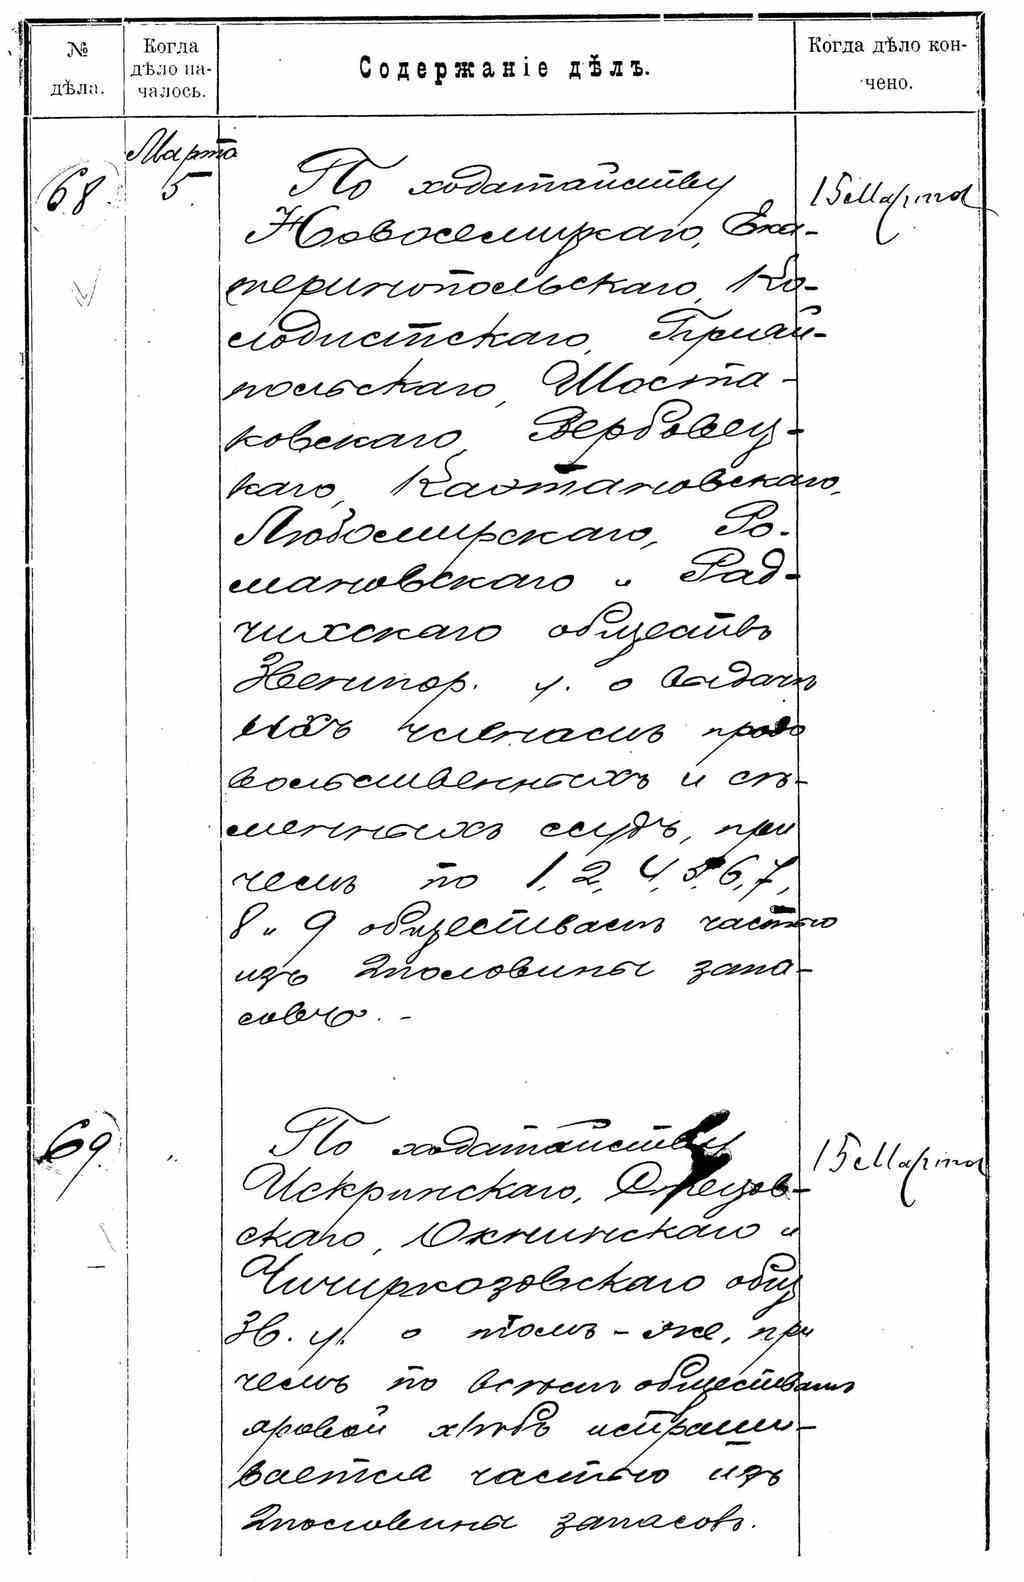 № дѣла.
Когда дѣло началось.
Содержаніе дѣлъ.
Когда дѣло кон-
чено.
Марта
68. 5 По ходатайству 15 Марта
Новоселицкаго, Ека-
теринопольскаго, Ко-
лодистскаго, Гуляй-
польскаго, Шоста-
ковскаго, Вербовец-
каго, Каэтановскаго,
Любомирскаго, Ро-
мановскаго и Рад-
чихскаго обществъ
Звенигор. у. о выдачѣ
ихъ членамъ продо
вольственныхъ и сѣ-
менныхъ ссудъ, при
чемъ по 1, 2, 4, 5, 6, 7,
8 и 9 обществамъ частью
изъ 2 половины запа-
совъ. -
69. " По ходатайству 15 Марта
Искринскаго,
скаго, Окнинскаго и
Чичиркозовскаго общ
Зв. у. о томъ-же, при
чемъ по всѣмъ обществамъ
яровой хлѣбъ испраши-
вается частью изъ
2 половины запасовъ.